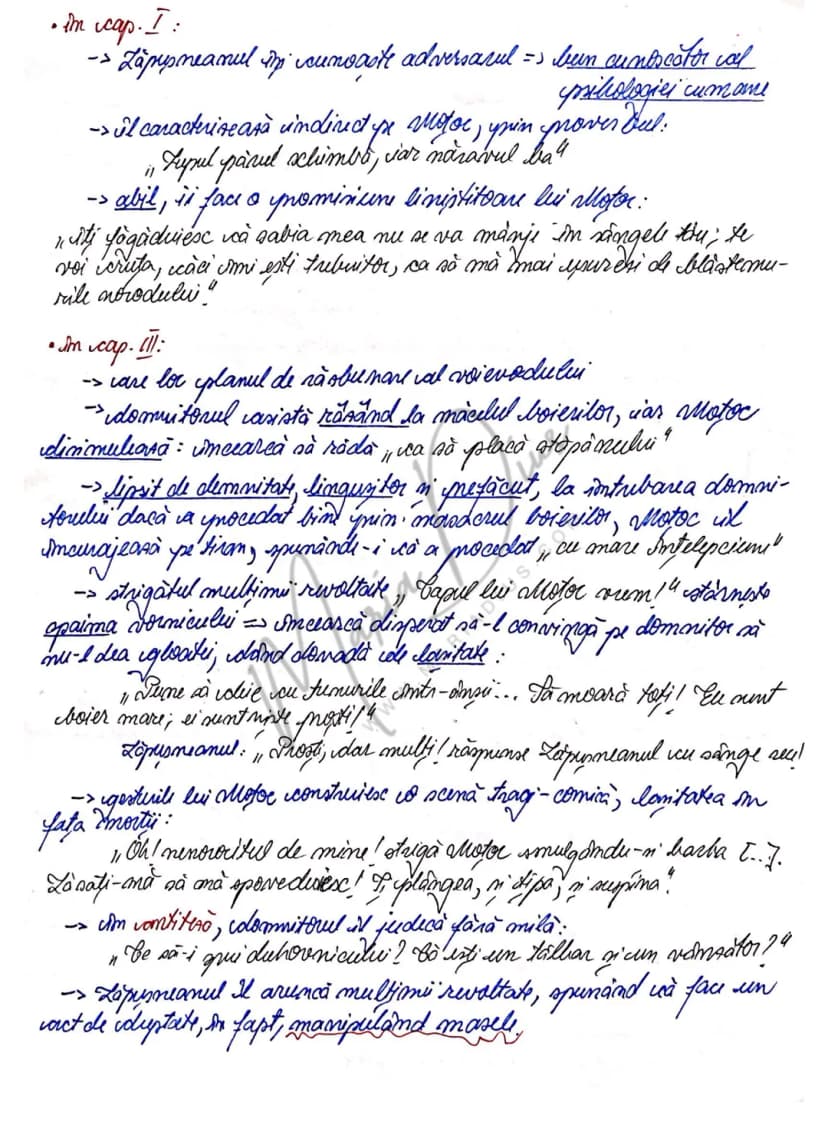 • în cap. I:
-> Lăpușneanul își cunoaște adversarul => bun cunoscător al
psihologiei umane
-> îl caracterizează indirect pe Moțoc, prin proverbul:
„Lupul părul schimbă, iar năravul ba"
-> abil, îi face o promisiune liniștitoare lui Moțoc:
„îți făgăduiesc că sabia mea nu se va mânji în sângele tău; te
voi cruța, căci îmi ești trebuitor, ca să mă mai ușurezi de blăstemu-
rile norodului"
• în cap. III:
-> are loc planul de răzbunare al voievodului
-> domnitorul asistă râzând la măcelul boierilor, iar Moțoc
disimulează: încearcă să râdă „ca să placă stăpânului"
-> lipsit de demnitate, lingușitor și prefăcut, la întrebarea domni-
torului dacă a procedat bine prin masacrul boierilor, Moțoc îl
încurajează pe tiran, spunându-i că a procedat „cu mare înțelepciune"
-> strigătul mulțimii revoltate „Capul lui Moțoc vrem!" stârnește
spaima vornicului => încearcă disperat să-l convingă pe domnitor să
nu-l dea gloatei, dând dovadă de lașitate:
„Pune să deie cu tunurile într-înșii... Să moară toți! Eu sunt
boier mare; ei sunt niște proști!"
Lăpușneanul: „Proști, dar mulți! răspunse Lăpușneanul cu sânge rece!
-> gesturile lui Moțoc construiesc o scenă tragi-comică, lașitatea în
fața morții:
„Oh! nenorocitul de mine! strigă Moțoc smulgându-și barba [...].
Lăsați-mă să mă spoveduiesc! Și plângea, și țipa, și suspina".
-> în antiteză, domnitorul îl judecă fără milă:
„Ce să-i spui duhovnicului? Că ești un tâlhar și un vânzător?"
-> Lăpușneanul îl aruncă mulțimii revoltate, spunând că face un
act de dreptate, în fapt, manipulând masele.
Maria Dinu